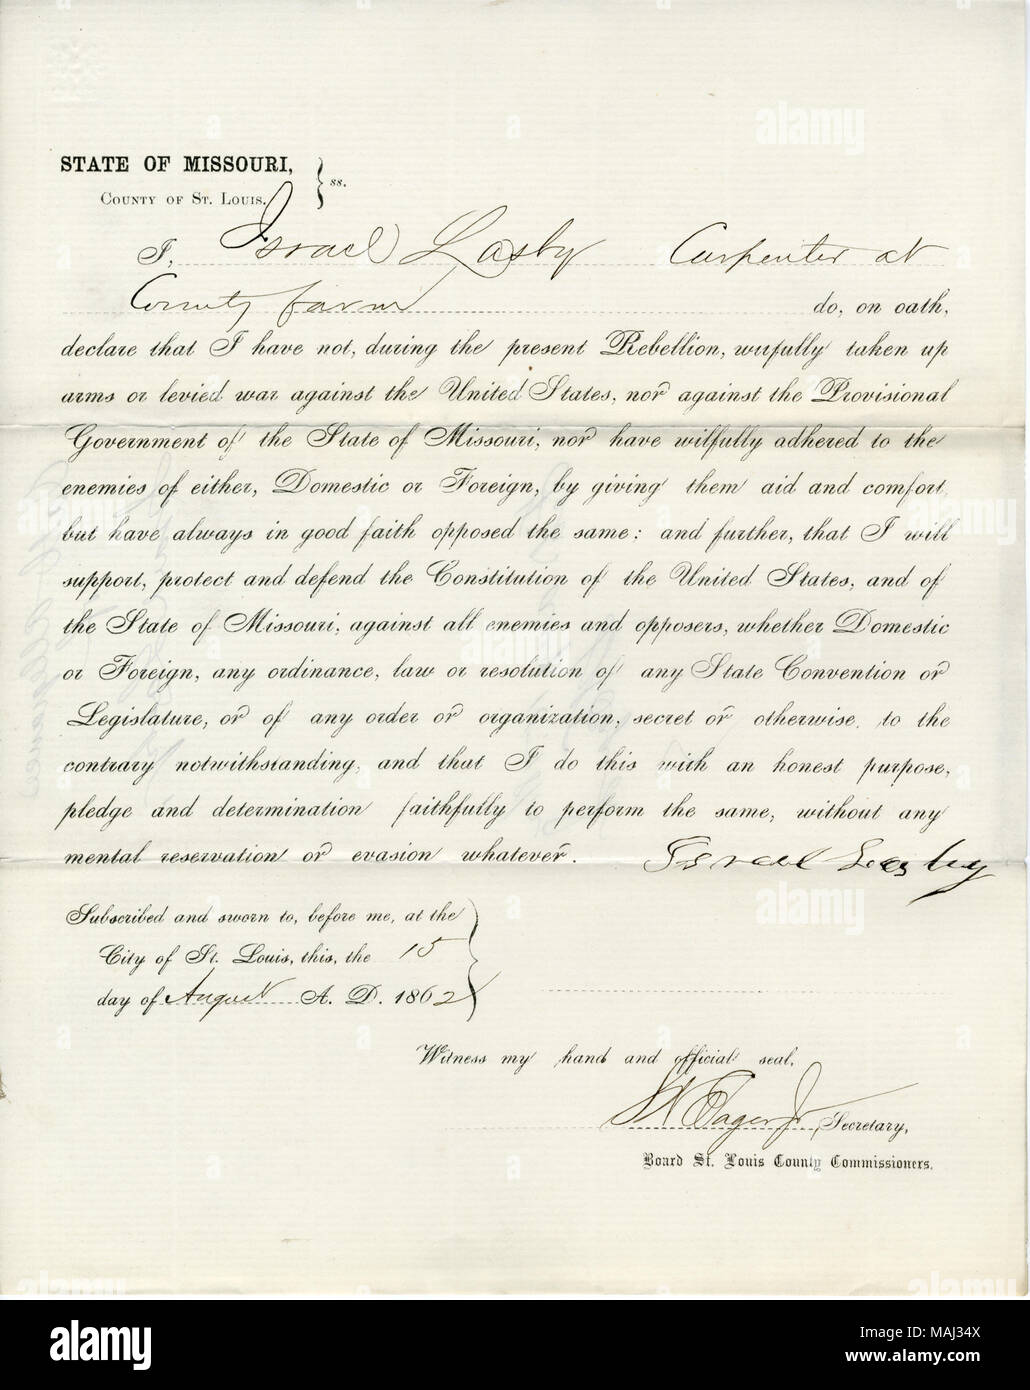 STATE OF MISSOURI,
COUNTY OF ST. LOUIS. } ss.
I, Israel Lasby Carpenter at
County farm do, on oath,
declare that I have not, during the present Rebellion, wilfully taken up
arms or levied war against the United States, nor against the Provisional
Government of the State of Missouri, nor have wilfully adhered to the
enemies of either, Domestic or Foreign, by giving them aid and comfort,
but have always in good faith opposed the same; and further, that I will
support, protect and defend the Constitution of the United States, and of
the State of Missouri, against all enemies and opposers, whether Domestic
or Foreign, any ordinance, law or resolution of any State Convention or
Legislature, or of any order or organization, secret or otherwise, to the
contrary notwithstanding, and that I do this with an honest purpose,
pledge and determination faithfully to perform the same, without any
mental reservation or evasion whatever. Israel Lasby
Subscribed and sworn to, before me, at the
City of St. Louis, this, the 15
day of August A. D. 1862
Witness my hand and official seal,
Eager Jr, Secretary,
Board St. Louis County Commissioners.
alamy
Image ID: MAJ34X
www.alamy.com